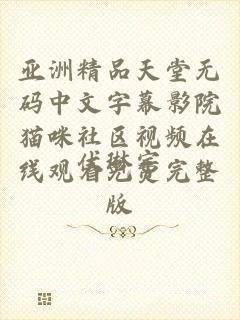 亚洲精品天堂无
码中文字幕影院
猫咪社区视频在
线观看免费完整
版